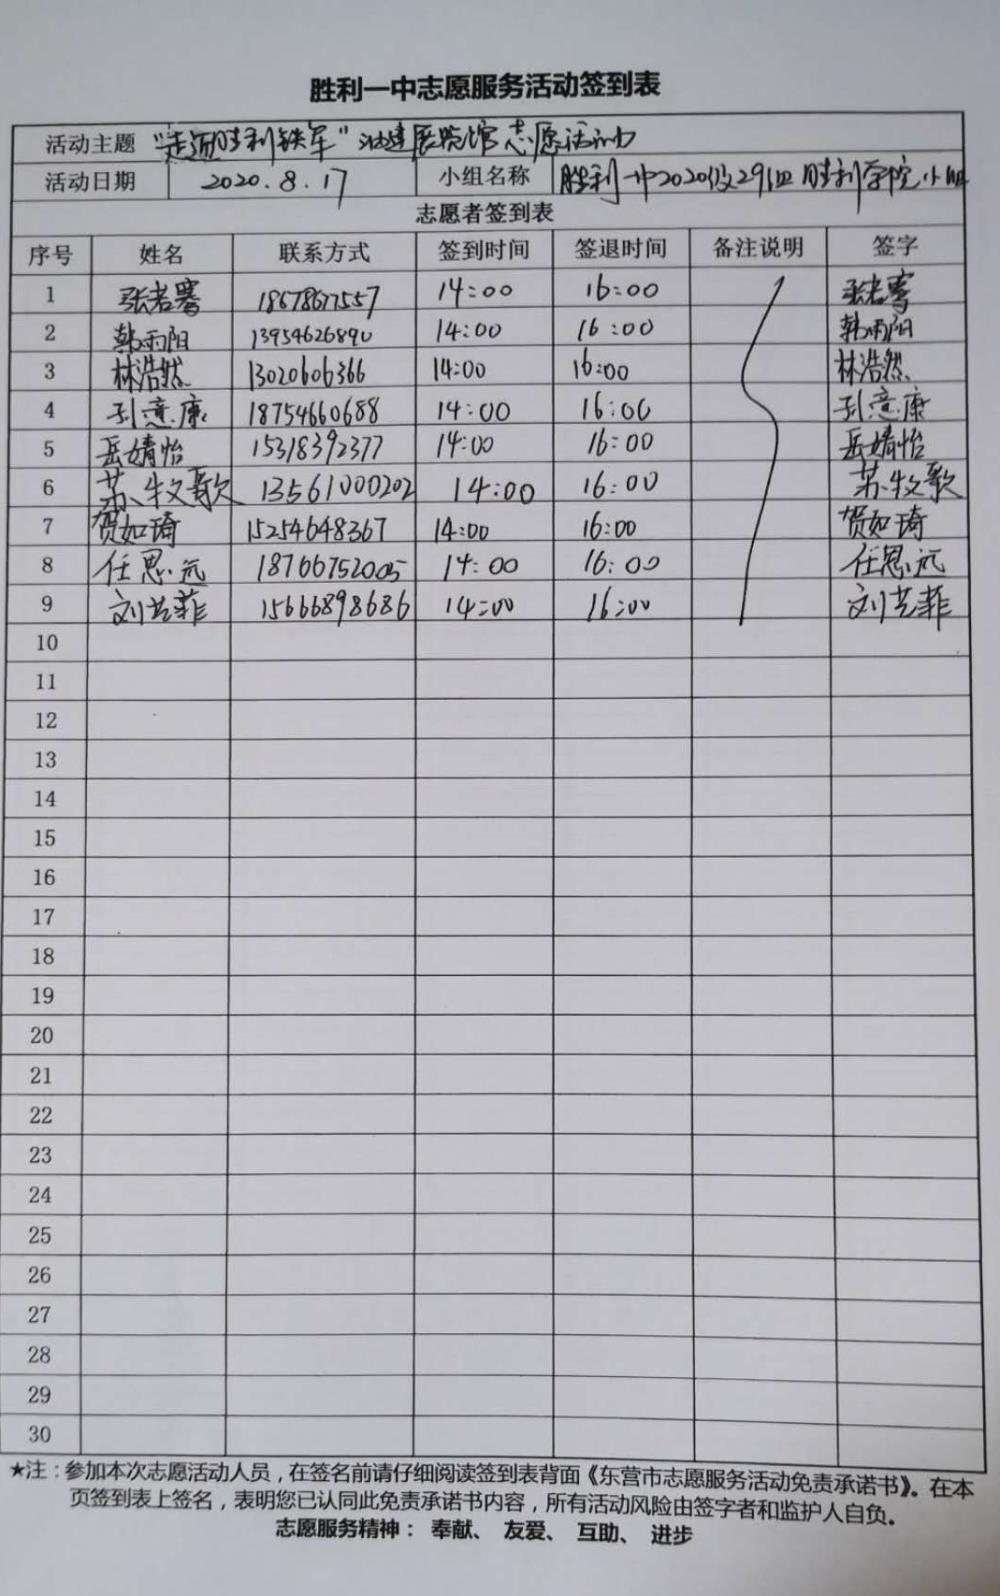 胜利一中志愿服务活动签到表
活动主题 "走近胜利铁军" 油建展览馆志愿活动
活动日期 2020.8.17 小组名称 胜利一中2020级29班胜利学院小组
志愿者签到表
序号 姓名 联系方式 签到时间 签退时间 备注说明 签字
1 张若骞 18678677557 14:00 16:00 张若骞
2 韩雨阳 13954626890 14:00 16:00 韩雨阳
3 林浩然 13020606366 14:00 16:00 林浩然
4 孙意康 18754660688 14:00 16:00 孙意康
5 岳婧怡 15318392377 14:00 16:00 岳婧怡
6 苏牧歌 13561000202 14:00 16:00 苏牧歌
7 贺如琦 15254648367 14:00 16:00 贺如琦
8 任思远 18766752005 14:00 16:00 任思远
9 刘芸菲 15666898686 14:00 16:00 刘芸菲
10
11
12
13
14
15
16
17
18
19
20
21
22
23
24
25
26
27
28
29
30
★注：参加本次志愿活动人员，在签名前请仔细阅读签到表背面《东营市志愿服务活动免责承诺书》。在本
页签到表上签名，表明您已认同此免责承诺书内容，所有活动风险由签字者和监护人自负。
志愿服务精神： 奉献、 友爱、 互助、 进步